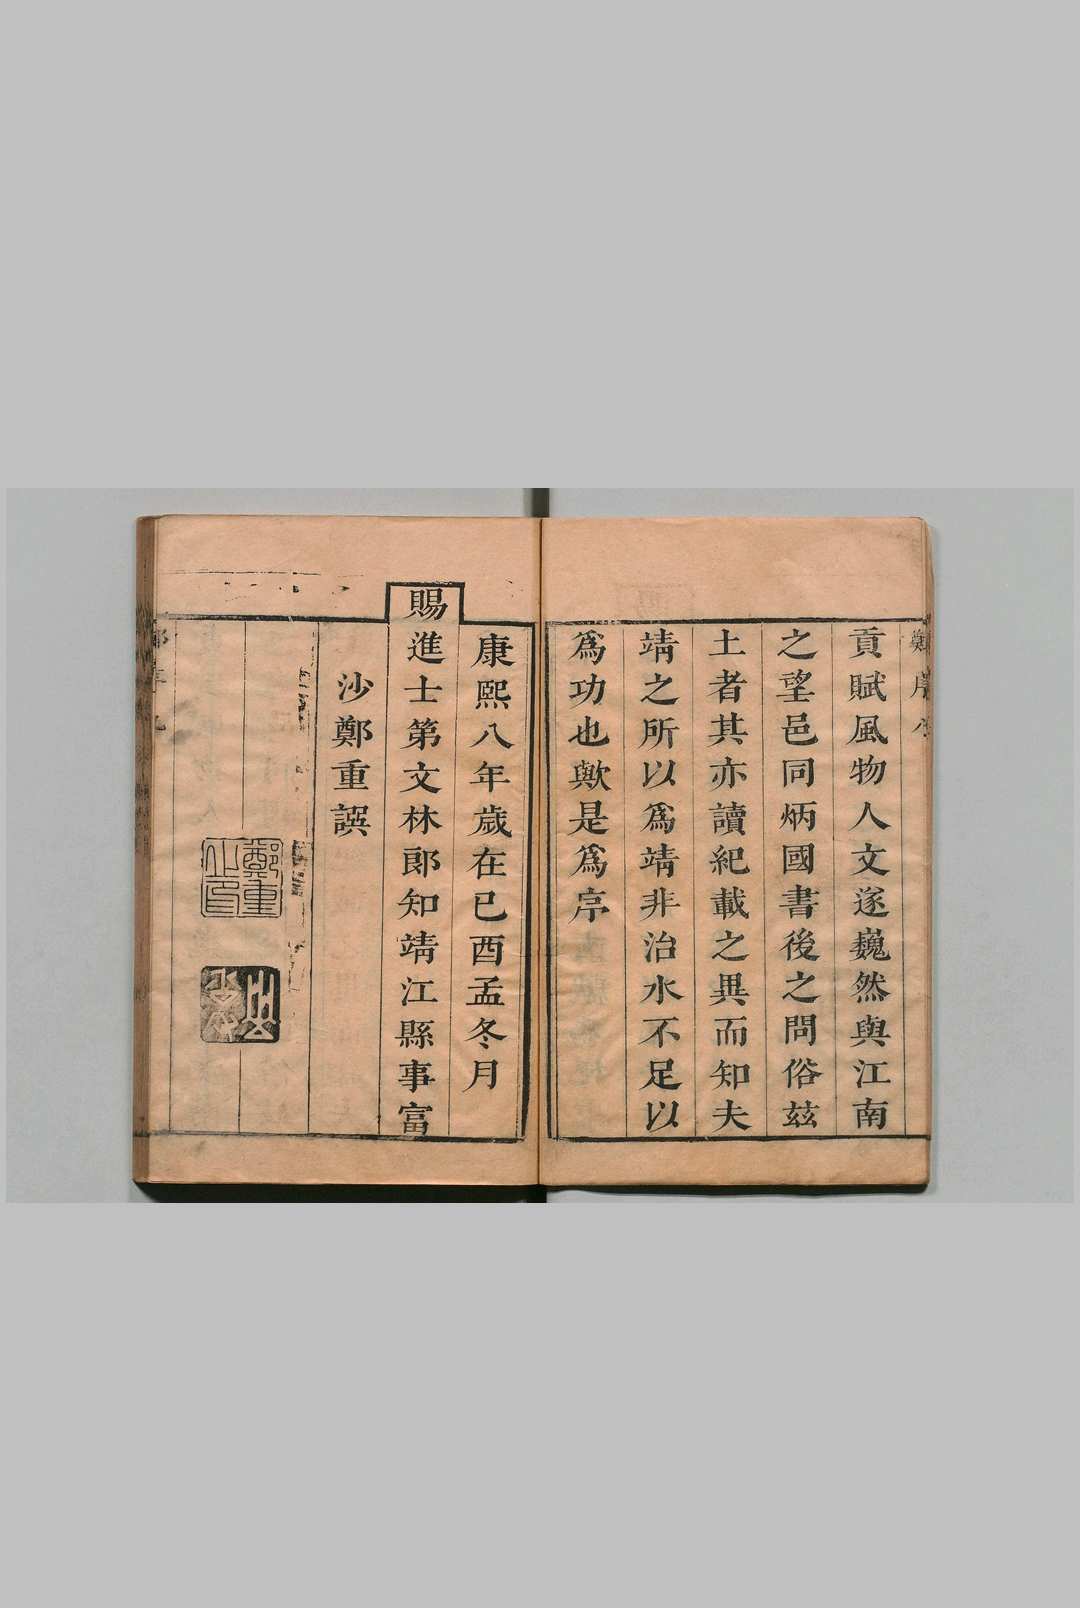 鄭序八
貢賦風物人文遂巍然與江南
之望邑同炳國書後之問俗玆
土者其亦讀紀載之異而知夫
靖之所以爲靖非治水不足以
爲功也歟是爲序
康熙八年歲在已酉孟冬月
賜進士第文林郎知靖江縣事富
沙鄭重譔
鄭重之印